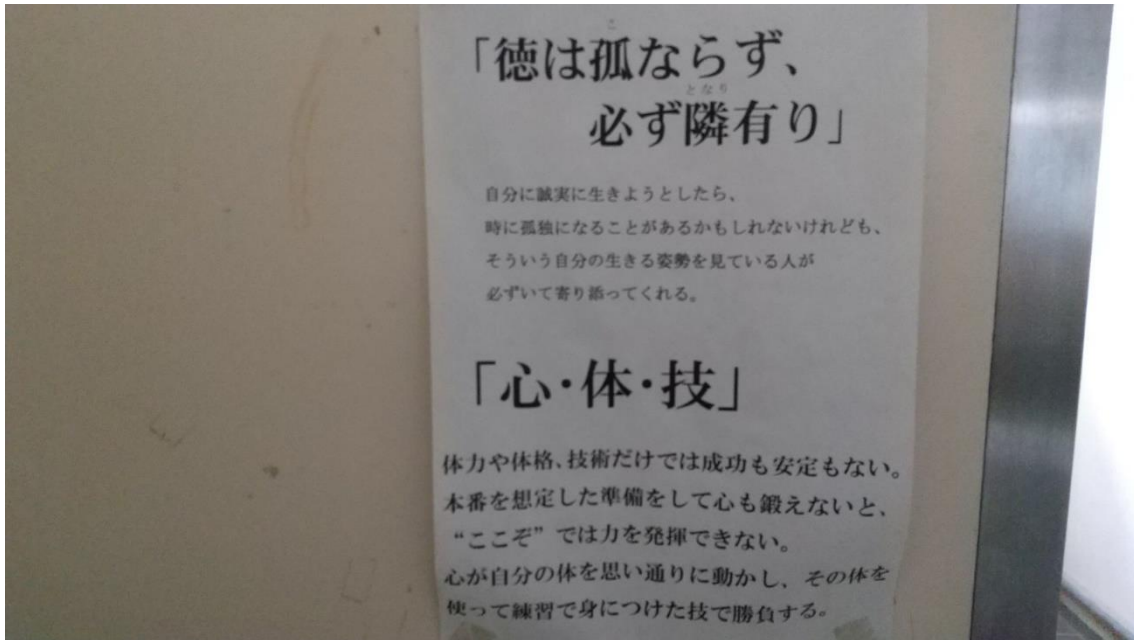 「徳は孤ならず、
必ず隣有り」
自分に誠実に生きようとしたら、
時に孤独になることがあるかもしれないけれども、
そういう自分の生きる姿勢を見ている人が
必ずいて寄り添ってくれる。
「心・体・技」
体力や体格、技術だけでは成功も安定もない。
本番を想定した準備をして心も鍛えないと、
“ここぞ”では力を発揮できない。
心が自分の体を思い通りに動かし、その体を
使って練習で身につけた技で勝負する。